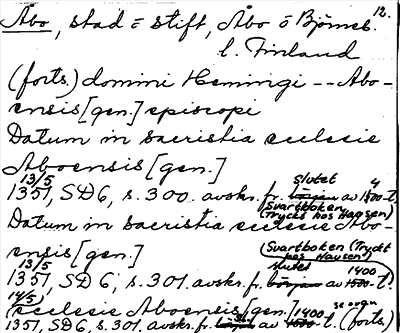 12.
Åbo, stad o stift, Åbo o Björneb.
l. Finland
(forts.) domini Hemingi -- Abo-
ensis [gen.] episcopi
Datum in sacristia ecclesie
Aboensis [gen.]
13/5 slutet 4
1351, SD6, s. 300. avskr. fr. början av 1500-t.
Svartboken
(Tryckt hos Hausen)
Datum in sacristia ecclesie Abo-
ensis [gen.]
(Svartboken (Tryckt
hos Hausen)
13/5 slutet 1400
1351, SD6, s. 301. avskr. fr. början av 1500-t.
14/5
(ecclesie Aboensis [gen.] 1400 se ovan
1351, SD6, s. 301. avskr. fr. början av 1500-t. (forts.)